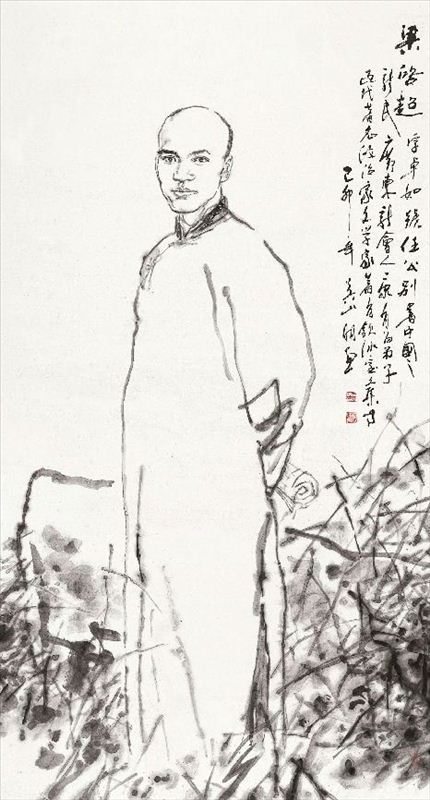 梁啓超 字卓如號任公别署中國之
新民廣東新會人康有為弟子
近代著名政治家文學家著有飲冰室文集等
己卯年 吴山明畫